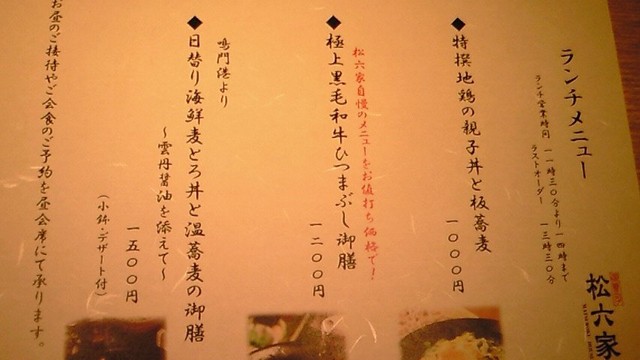 ランチメニュー
ランチ営業時間 一一時三〇分より一四時まで
ラストオーダー 一三時三〇分
松六家
◆特撰地鶏の親子丼と板蕎麦
一〇〇〇円
松六家自慢のメニューをお値打ち価格で！
◆極上黒毛和牛ひつまぶし御膳
一二〇〇円
鳴門港より
◆日替り海鮮麦とろ丼と温蕎麦の御膳
〜雲丹醤油を添えて〜
一五〇〇円
（小鉢・デザート付）
お昼のご接待やご会食のご予約を昼会席にて承ります。